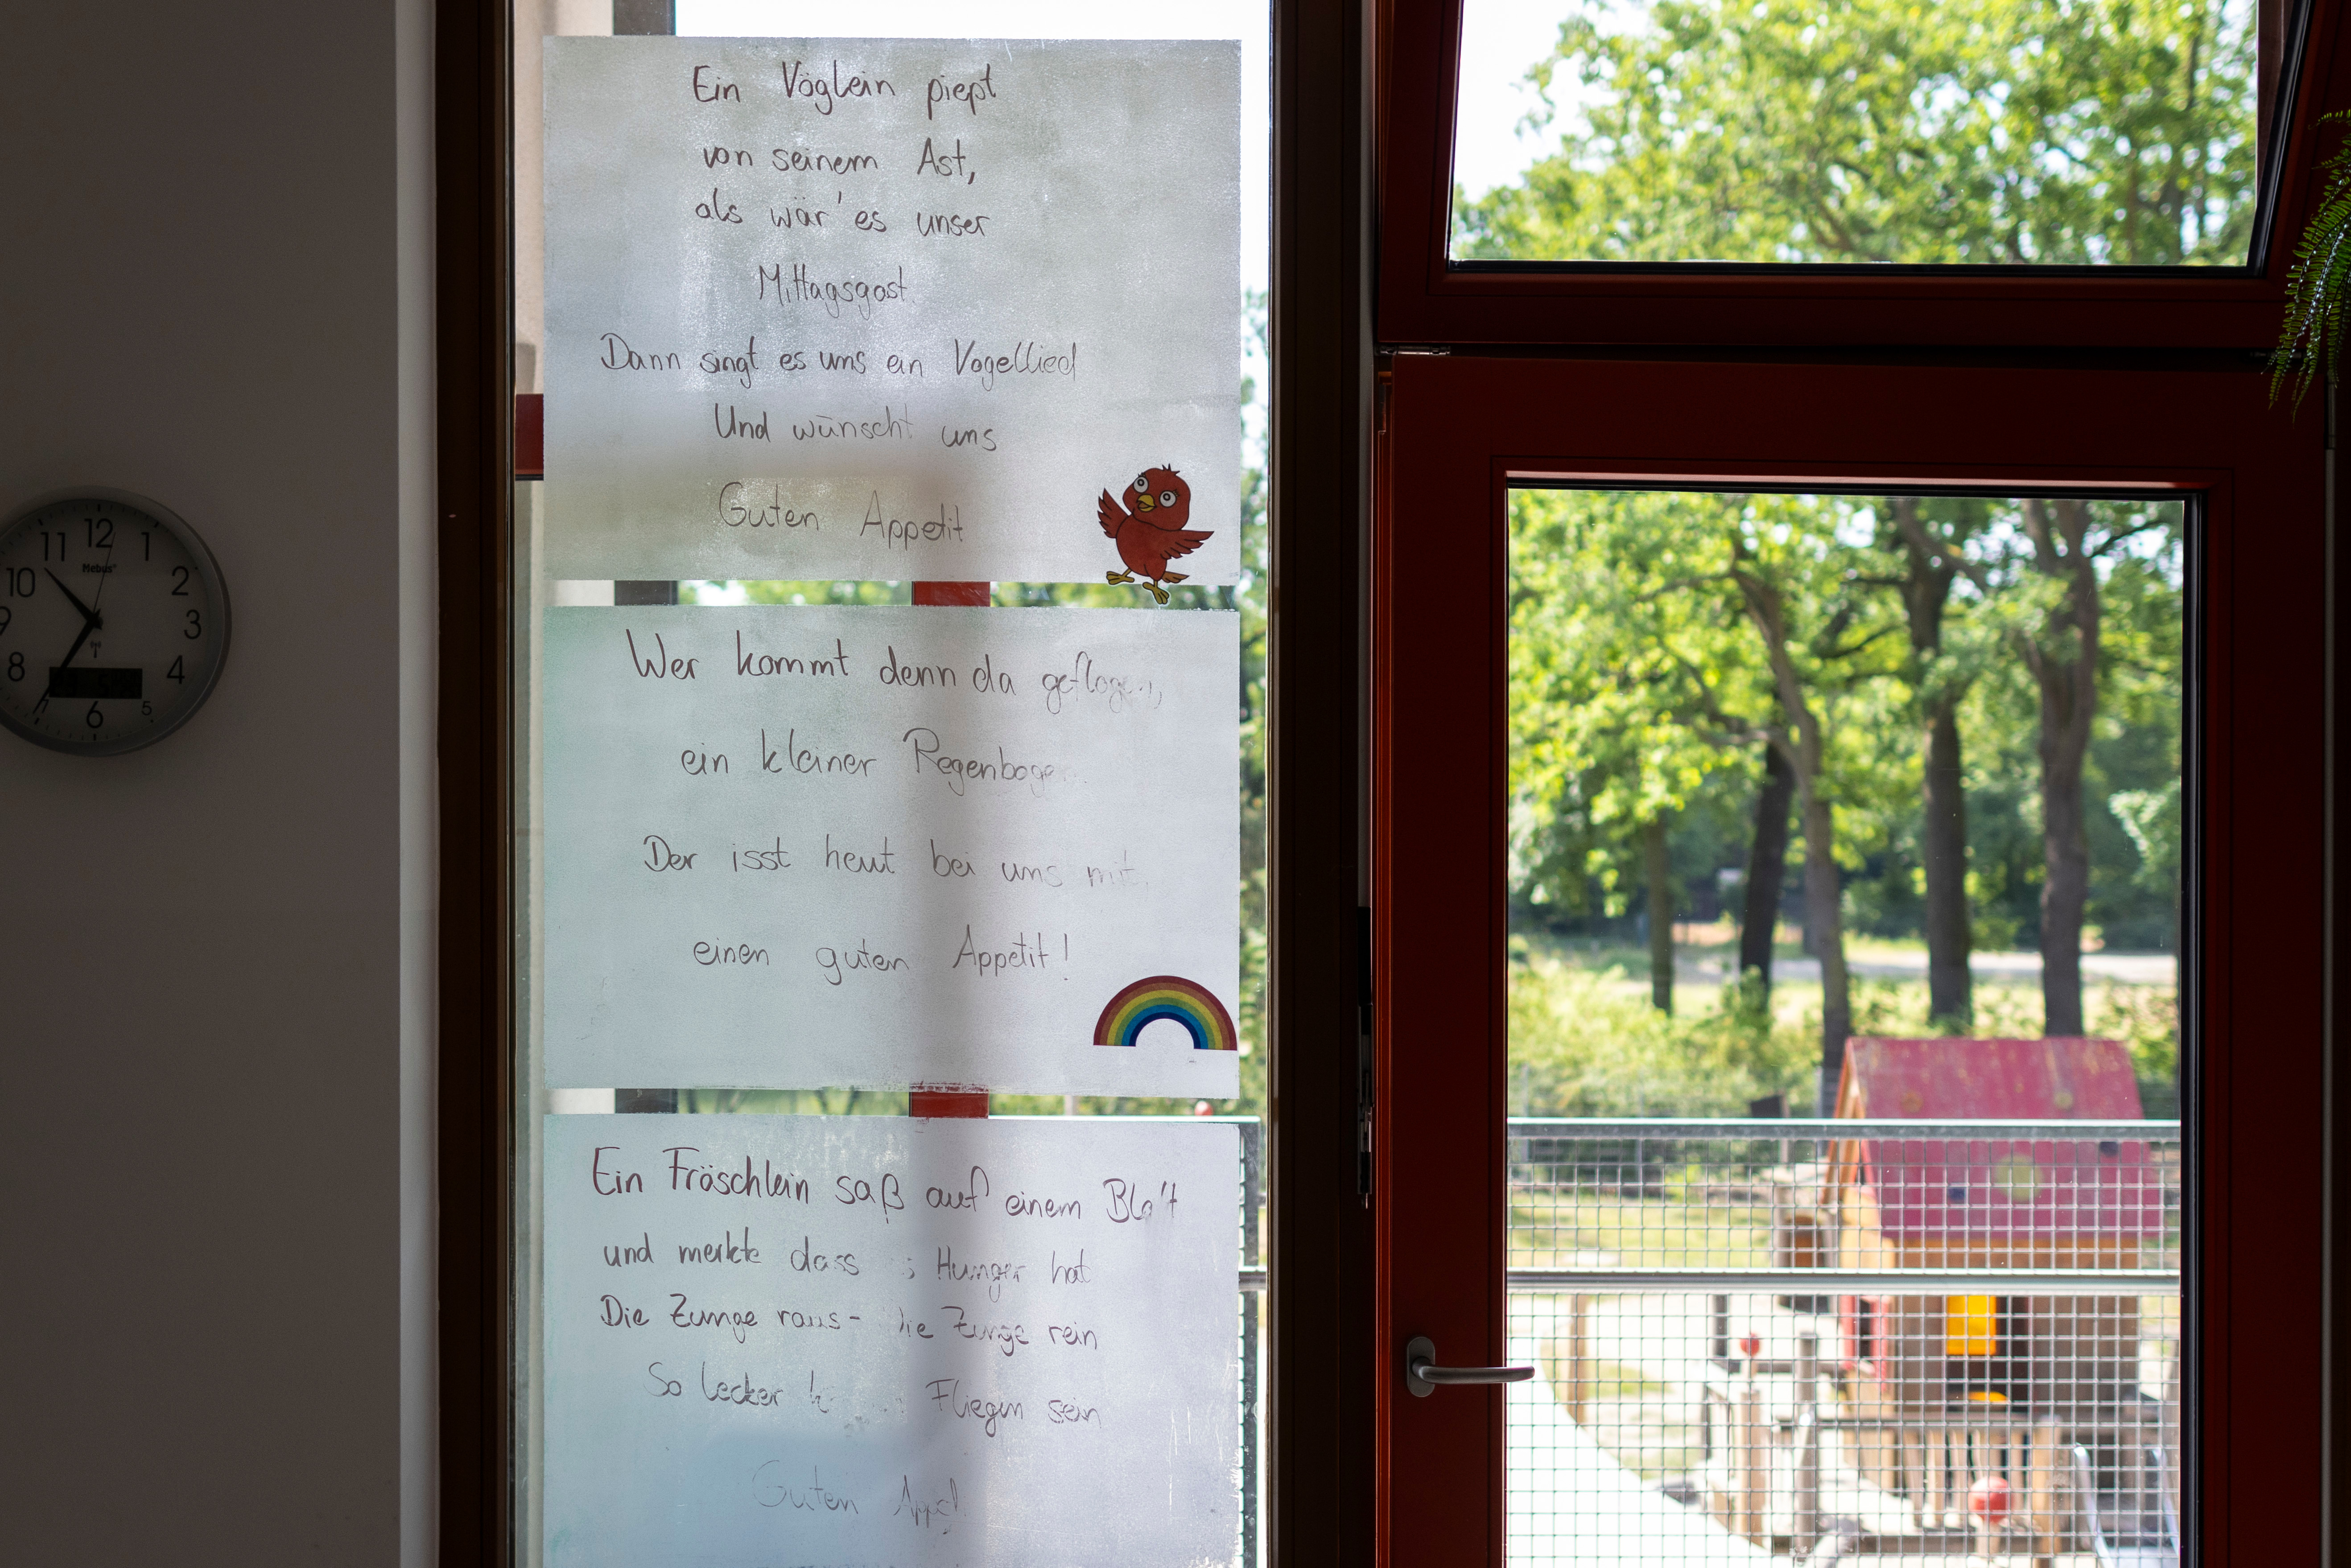 Ein Vöglein piept
von seinem Ast,
als wär' es unser
Mittagsgast.
Dann singt es uns ein Vogellied
Und wünscht uns
Guten Appetit
Wer kommt denn da geflogen,
ein kleiner Regenbogen
Der isst heut bei uns mit.
einen guten Appetit!
Ein Fröschlein saß auf einem Blatt
und merkte dass Hunger hat
Die Zunge raus- die Zunge rein
So lecker Fliegen sein
Guten
12
1
2
3
4
5
6
7
8
9
10
11
Mebus